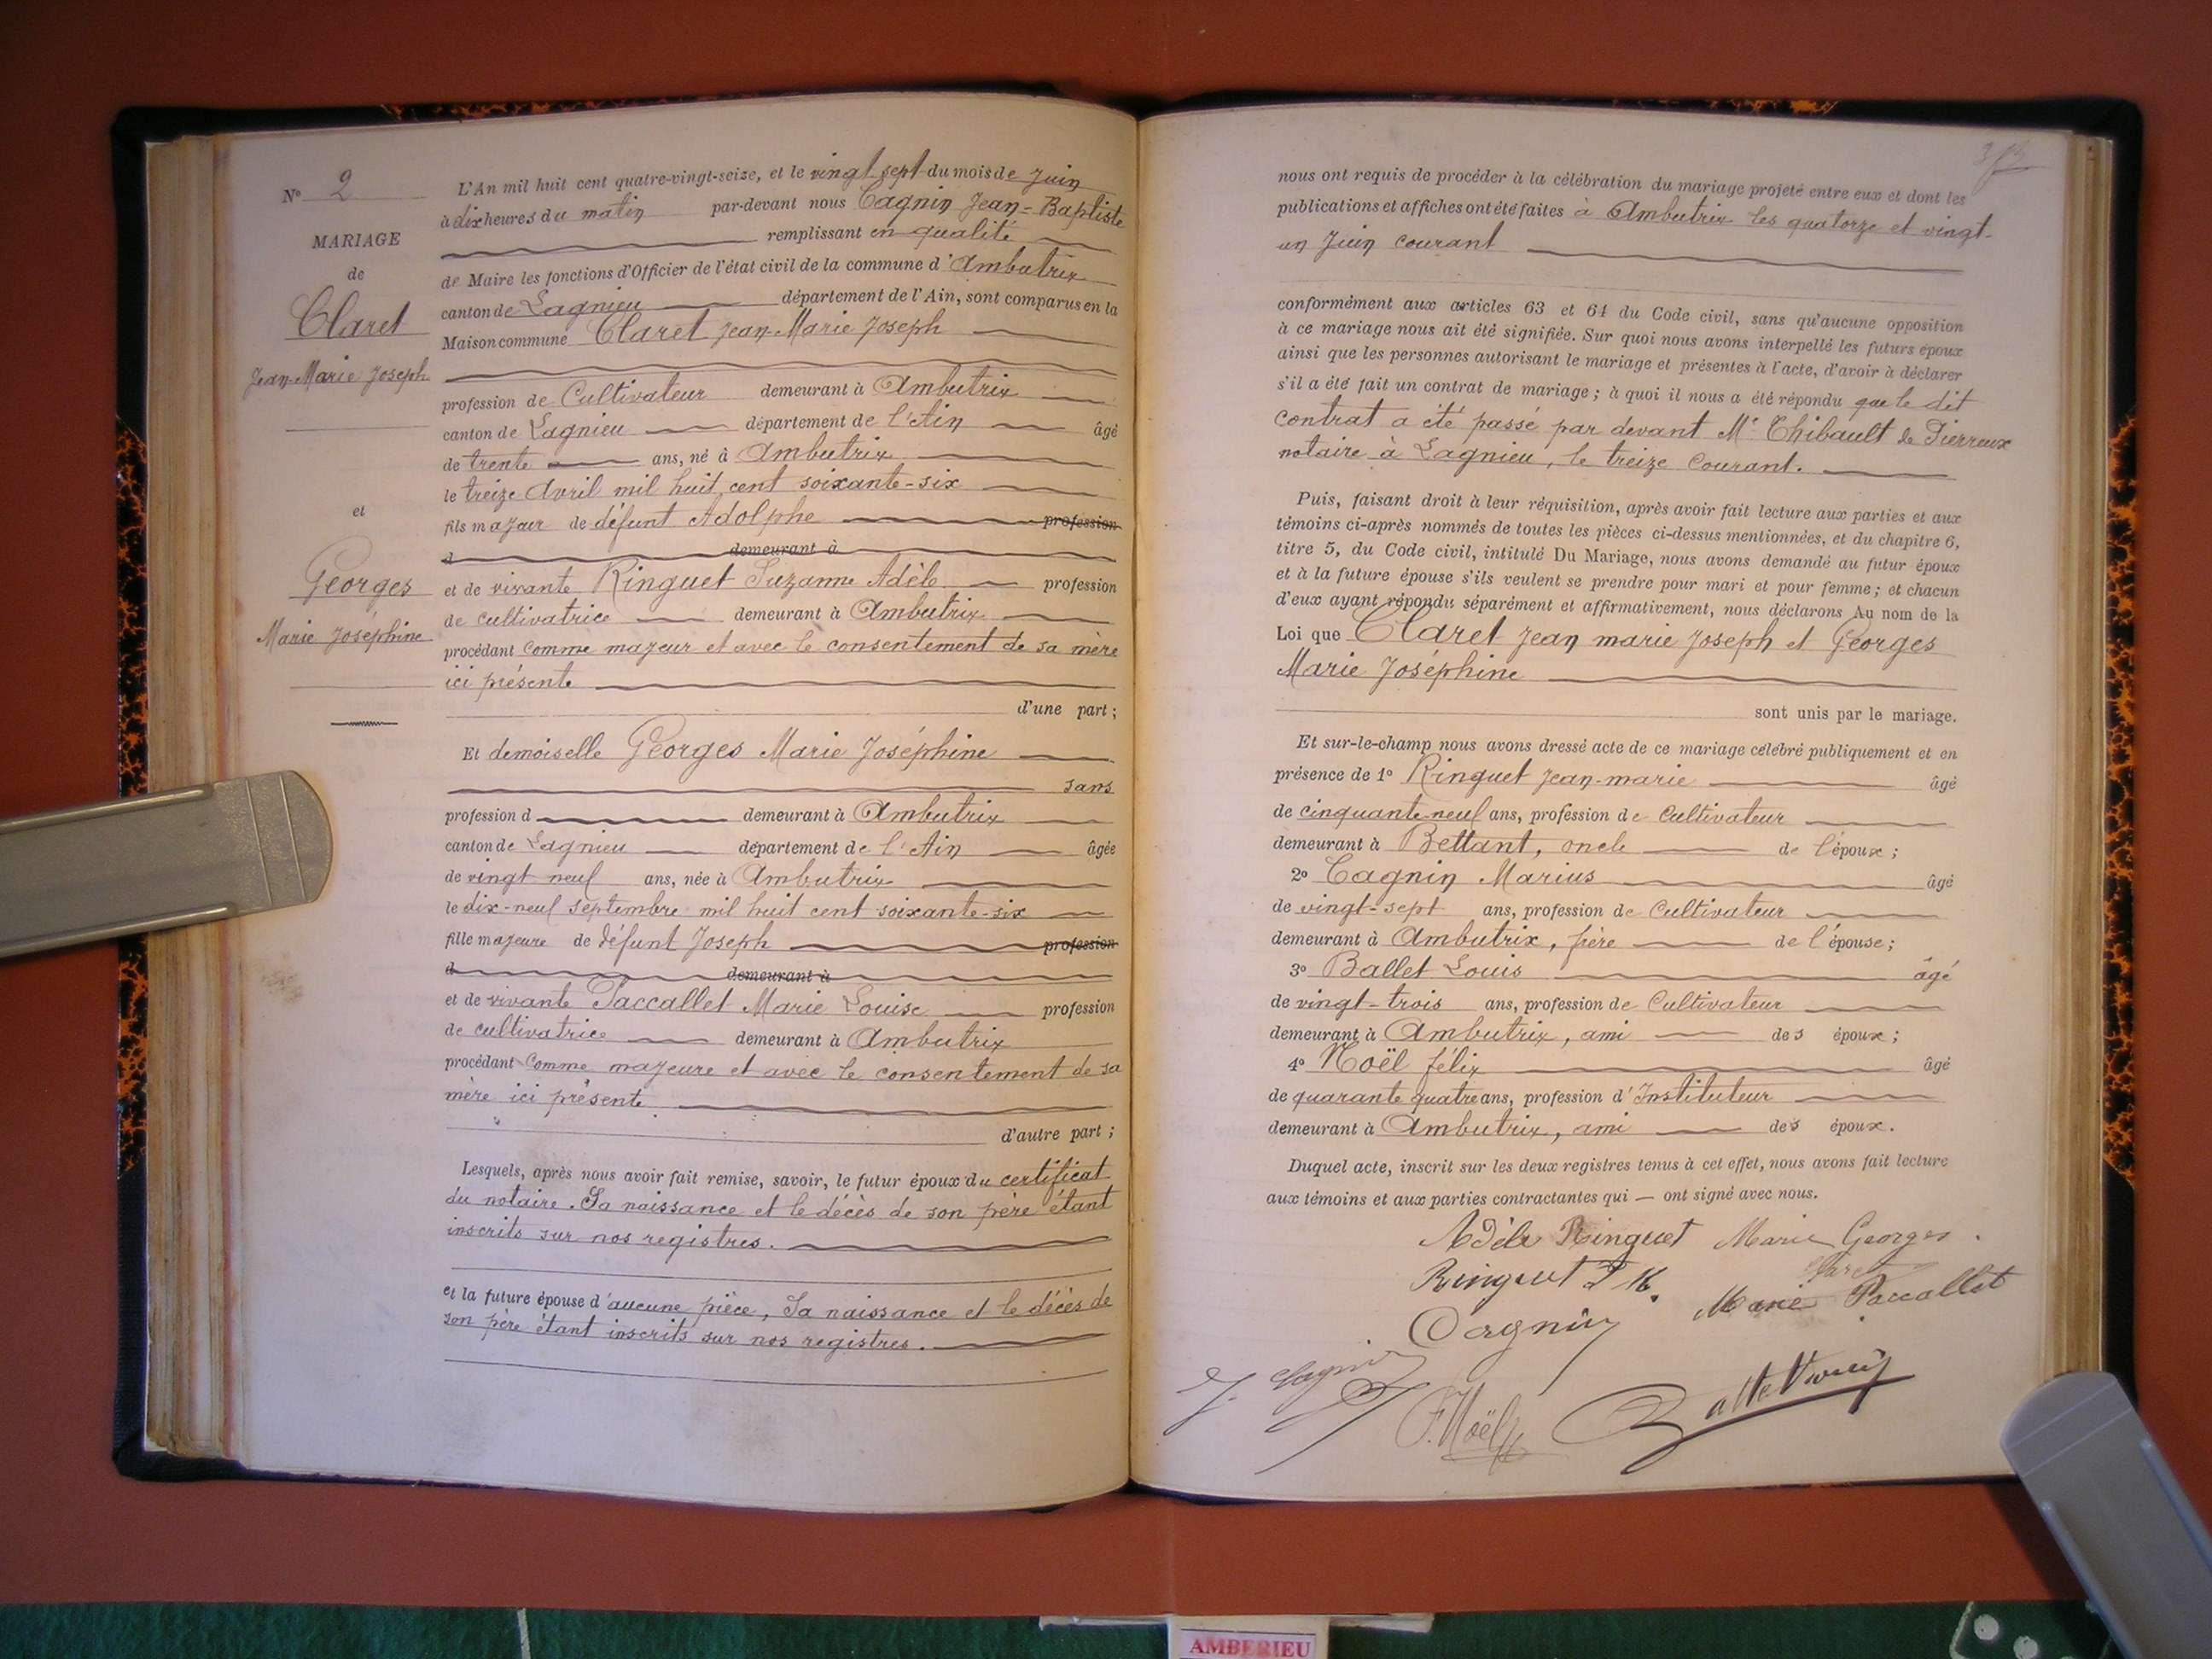 N° 2
MARIAGE
de
Claret
Jean-Marie Joseph
et
Georges
Marie Joséphine
L'An mil huit cent quatre-vingt-seize, et le vingt sept du mois de Juin
à dix heures du matin par-devant nous Cagnin Jean-Baptiste
remplissant en qualité
de Maire les fonctions d'Officier de l'état civil de la commune d'Ambutrix
canton de Lagnieu département de l'Ain, sont comparus en la
Maison commune Claret Jean-Marie Joseph
profession de Cultivateur demeurant à Ambutrix
canton de Lagnieu département de l'Ain âgé
de trente ans, né à Ambutrix
le treize Avril mil huit cent soixante-six
fils majeur de défunt Adolphe profession
d demeurant à
et de vivante Ringuet Suzanne Adèle profession
de cultivatrice demeurant à Ambutrix
procédant comme majeur et avec le consentement de sa mère
ici présente
d'une part;
Et demoiselle Georges Marie Joséphine
sans
profession d demeurant à Ambutrix
canton de Lagnieu département de l'Ain âgée
de vingt neuf ans, née à Ambutrix
le dix-neuf septembre mil huit cent soixante-six
fille majeure de défunt Joseph profession
d demeurant à
et de vivante Paccallet Marie Louise profession
de cultivatrice demeurant à Ambutrix
procédant comme majeure et avec le consentement de sa
mère ici présente
d'autre part;
Lesquels, après nous avoir fait remise, savoir, le futur époux du certificat
du notaire. Sa naissance et le décès de son père étant
inscrits sur nos registres.
et la future épouse d'aucune pièce, Sa naissance et le décès de
son père étant inscrits sur nos registres.
nous ont requis de procéder à la célébration du mariage projeté entre eux et dont les
publications et affiches ont été faites à Ambutrix les quatorze et vingt-
un Juin courant
conformément aux articles 63 et 64 du Code civil, sans qu'aucune opposition
à ce mariage nous ait été signifiée. Sur quoi nous avons interpellé les futurs époux
ainsi que les personnes autorisant le mariage et présentes à l'acte, d'avoir à déclarer
s'il a été fait un contrat de mariage; à quoi il nous a été répondu que le dit
contrat a été passé par devant Me Thibault de Pierreux
notaire à Lagnieu, le treize courant.
Puis, faisant droit à leur réquisition, après avoir fait lecture aux parties et aux
témoins ci-après nommés de toutes les pièces ci-dessus mentionnées, et du chapitre 6,
titre 5, du Code civil, intitulé Du Mariage, nous avons demandé au futur époux
et à la future épouse s'ils veulent se prendre pour mari et pour femme; et chacun
d'eux ayant répondu séparément et affirmativement, nous déclarons Au nom de la
Loi que Claret Jean marie Joseph et Georges
Marie Joséphine
sont unis par le mariage.
Et sur-le-champ nous avons dressé acte de ce mariage célébré publiquement et en
présence de 1° Ringuet Jean-marie âgé
de cinquante-neuf ans, profession de Cultivateur
demeurant à Bettant, oncle de l'époux;
2° Cagnin Marius âgé
de vingt-sept ans, profession de Cultivateur
demeurant à Ambutrix, frère de l'épouse;
3° Ballet Louis âgé
de vingt-trois ans, profession de Cultivateur
demeurant à Ambutrix, ami des époux;
4° Noël félix âgé
de quarante quatre ans, profession d'Instituteur
demeurant à Ambutrix, ami des époux.
Duquel acte, inscrit sur les deux registres tenus à cet effet, nous avons fait lecture
aux témoins et aux parties contractantes qui — ont signé avec nous.
Adèle Ringuet Marie Georges
Ringuet J M. Claret
Marie Paccallet
Cagnin
J. Cagnin
F. Noël Ballet Louis
AMBERIEU